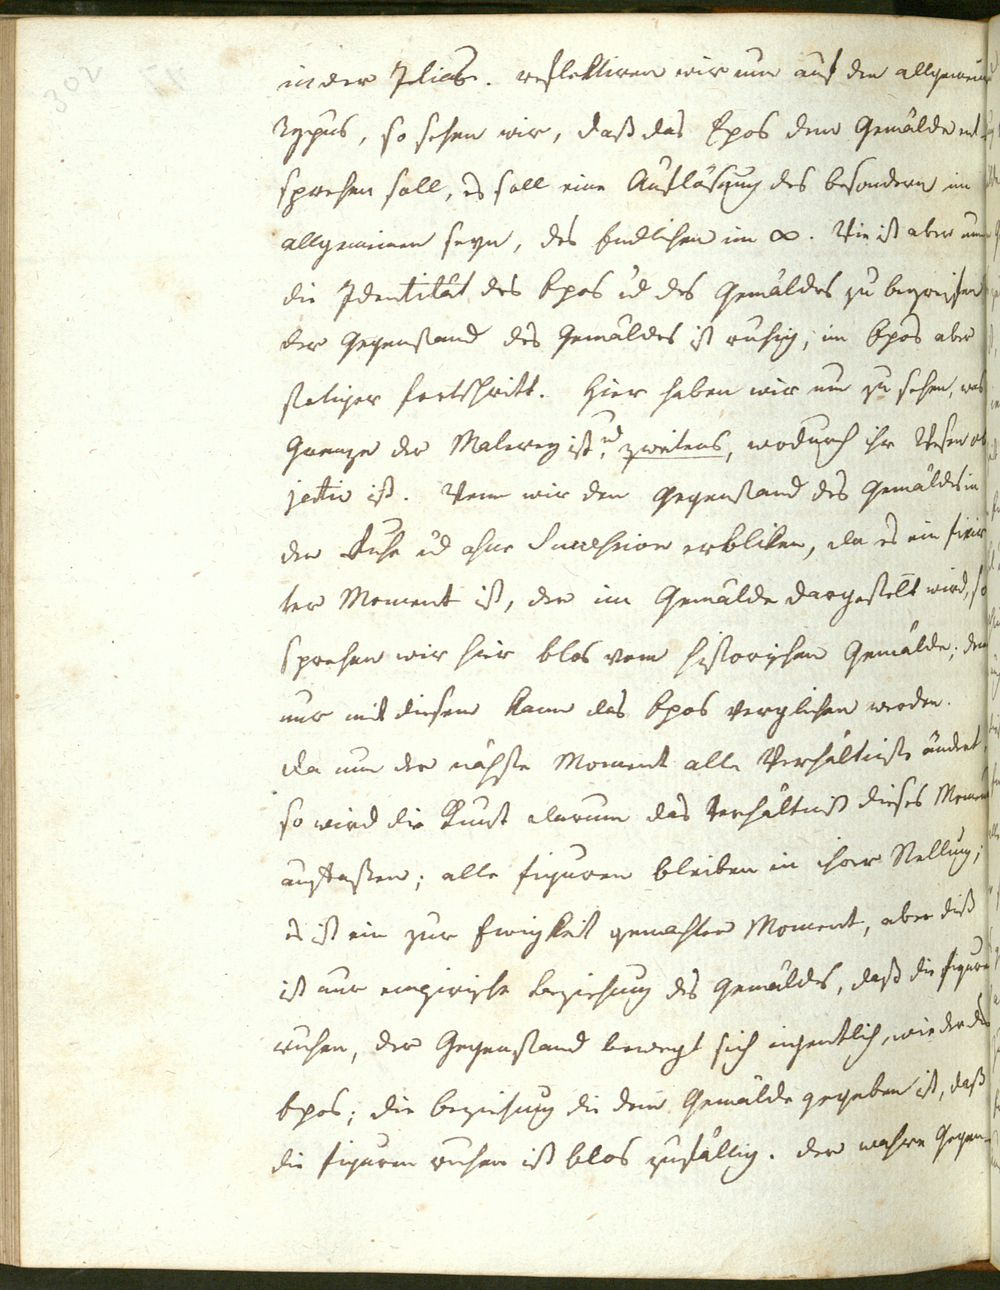 302
in der Ilias. reflektiren wir nun auf den allgemein
Typus, so sehen wir, daß das Epos dem Gemälde ent-
sprechen soll, es soll eine Auflösung des besondern im
allgemeinen seyn, des Endlichen im ∞. Wie ist aber nun
die Identität des Epos ud des Gemäldes zu begreifen
der Gegenstand des Gemäldes ist ruhig, im Epos aber
stetiger fortschritt. Hier haben wir nun zu sehen, was
Grenze der Malerey ist, ud zweitens, wodurch ihr Wesen ob
jectiv ist. Wenn wir den Gegenstand des Gemäldes in
der Ruhe ud ohne Succession erbliken, da es ein fixir
ter Moment ist, der im Gemälde dargestellt wird, so
sprechen wir hier blos vom historischen Gemälde; denn
nur mit diesem kann das Epos verglichen werden.
da nun der nächste Moment alle Verhältniße ändert,
so wird die Kunst darum das Verhältniß dieses Moments
auffaßen; alle figuren bleiben in ihrer Stellung;
es ist ein zur Ewigkeit gemachter Moment, aber diß
ist nur empirische beziehung des Gemäldes, daß die figuren
ruhen, der Gegenstand bewegt sich eigentlich, wie der des
Epos; die beziehung die dem Gemälde gegeben ist, daß
die figuren ruhen ist blos zufällig. der wahre Gegen-